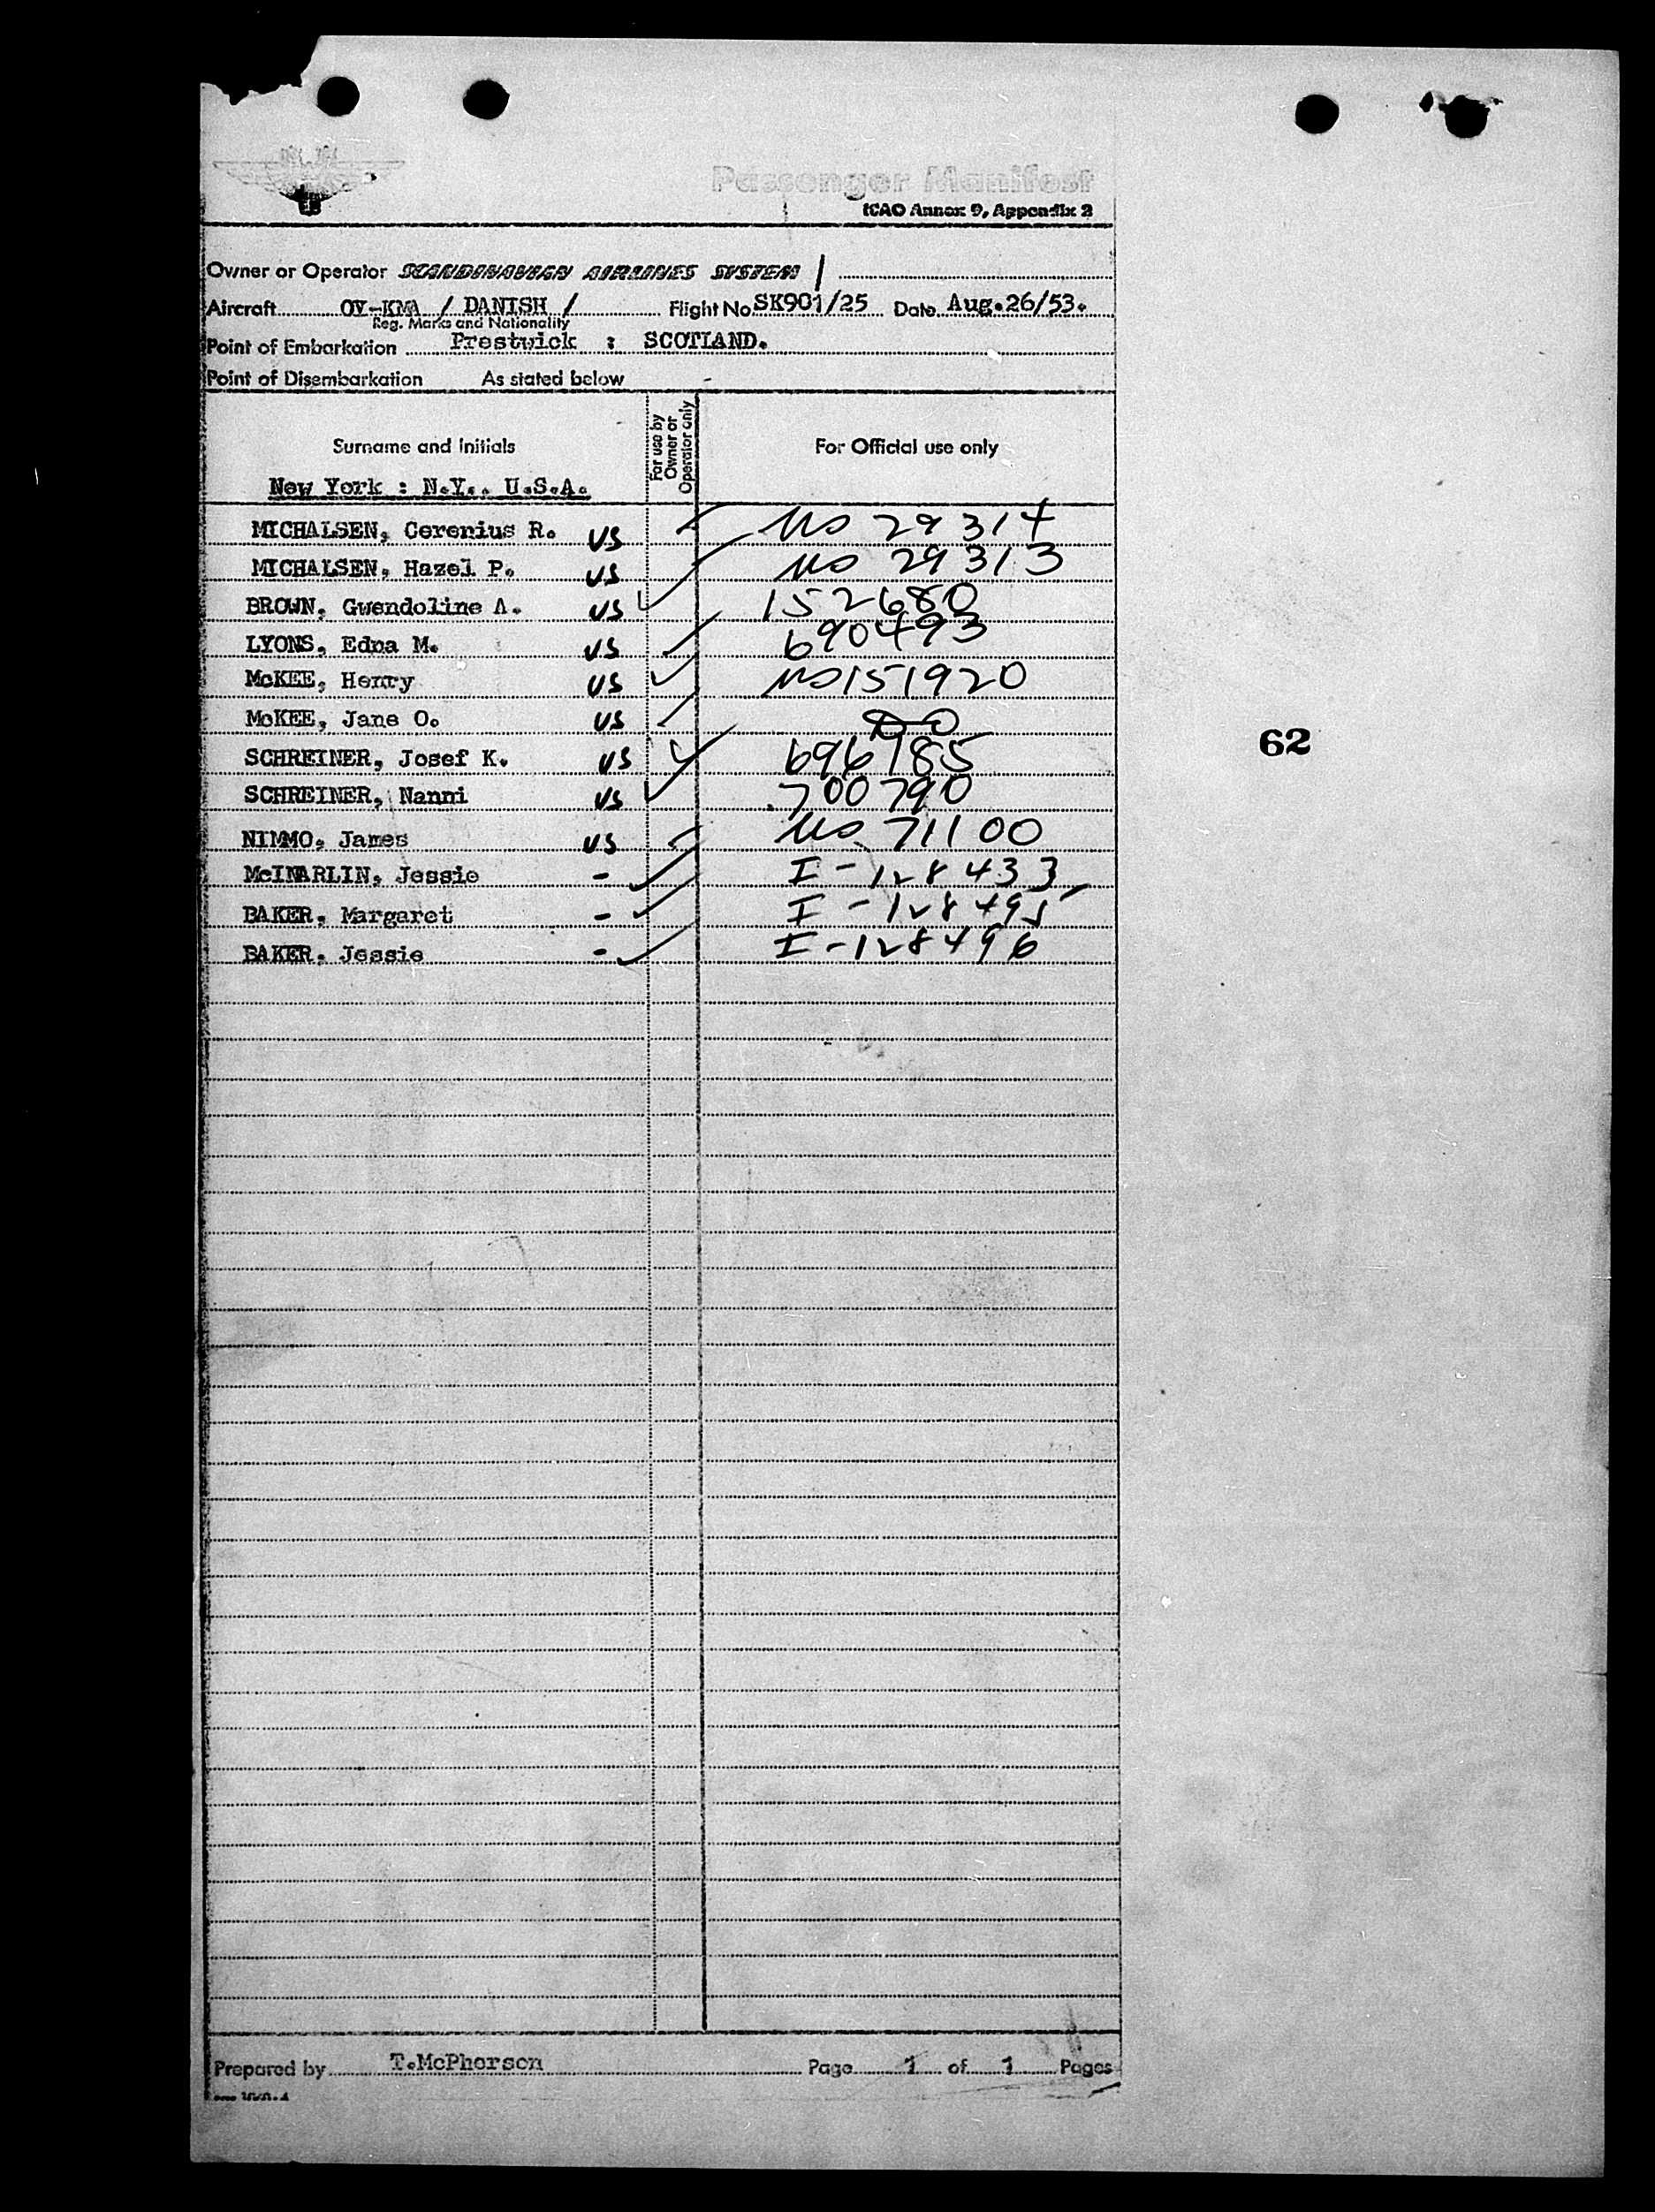 Passenger Manifest
ICAO Annex 9, Appendix 2
Owner or Operator SCANDINAVIAN AIRLINES SYSTEM /
Aircraft OY-KMA / DANISH / Flight No. SK901/25 Date Aug.26/53.
Reg. Marks and Nationality
Point of Embarkation Prestwick : SCOTLAND.
Point of Disembarkation As stated below
Surname and Initials For use by Owner or Operator only For Official use only
New York : N.Y.. U.S.A.
MICHALSEN, Cerenius R. US 29314
MICHALSEN, Hazel P. US 29313
BROWN, Gwendoline A. US 152680
LYONS, Edna M. US 690493
McKEE, Henry US 151920
McKEE, Jane O. US
SCHREINER, Josef K. US 696785
SCHREINER, Nanni US 700790
NIMMO, James US 71100
Jessie - I-128433
BAKER, Margaret - I-128495
BAKER, Jessie - I-128496
62
Prepared by T.McPherson Page 1 of 1 Pages